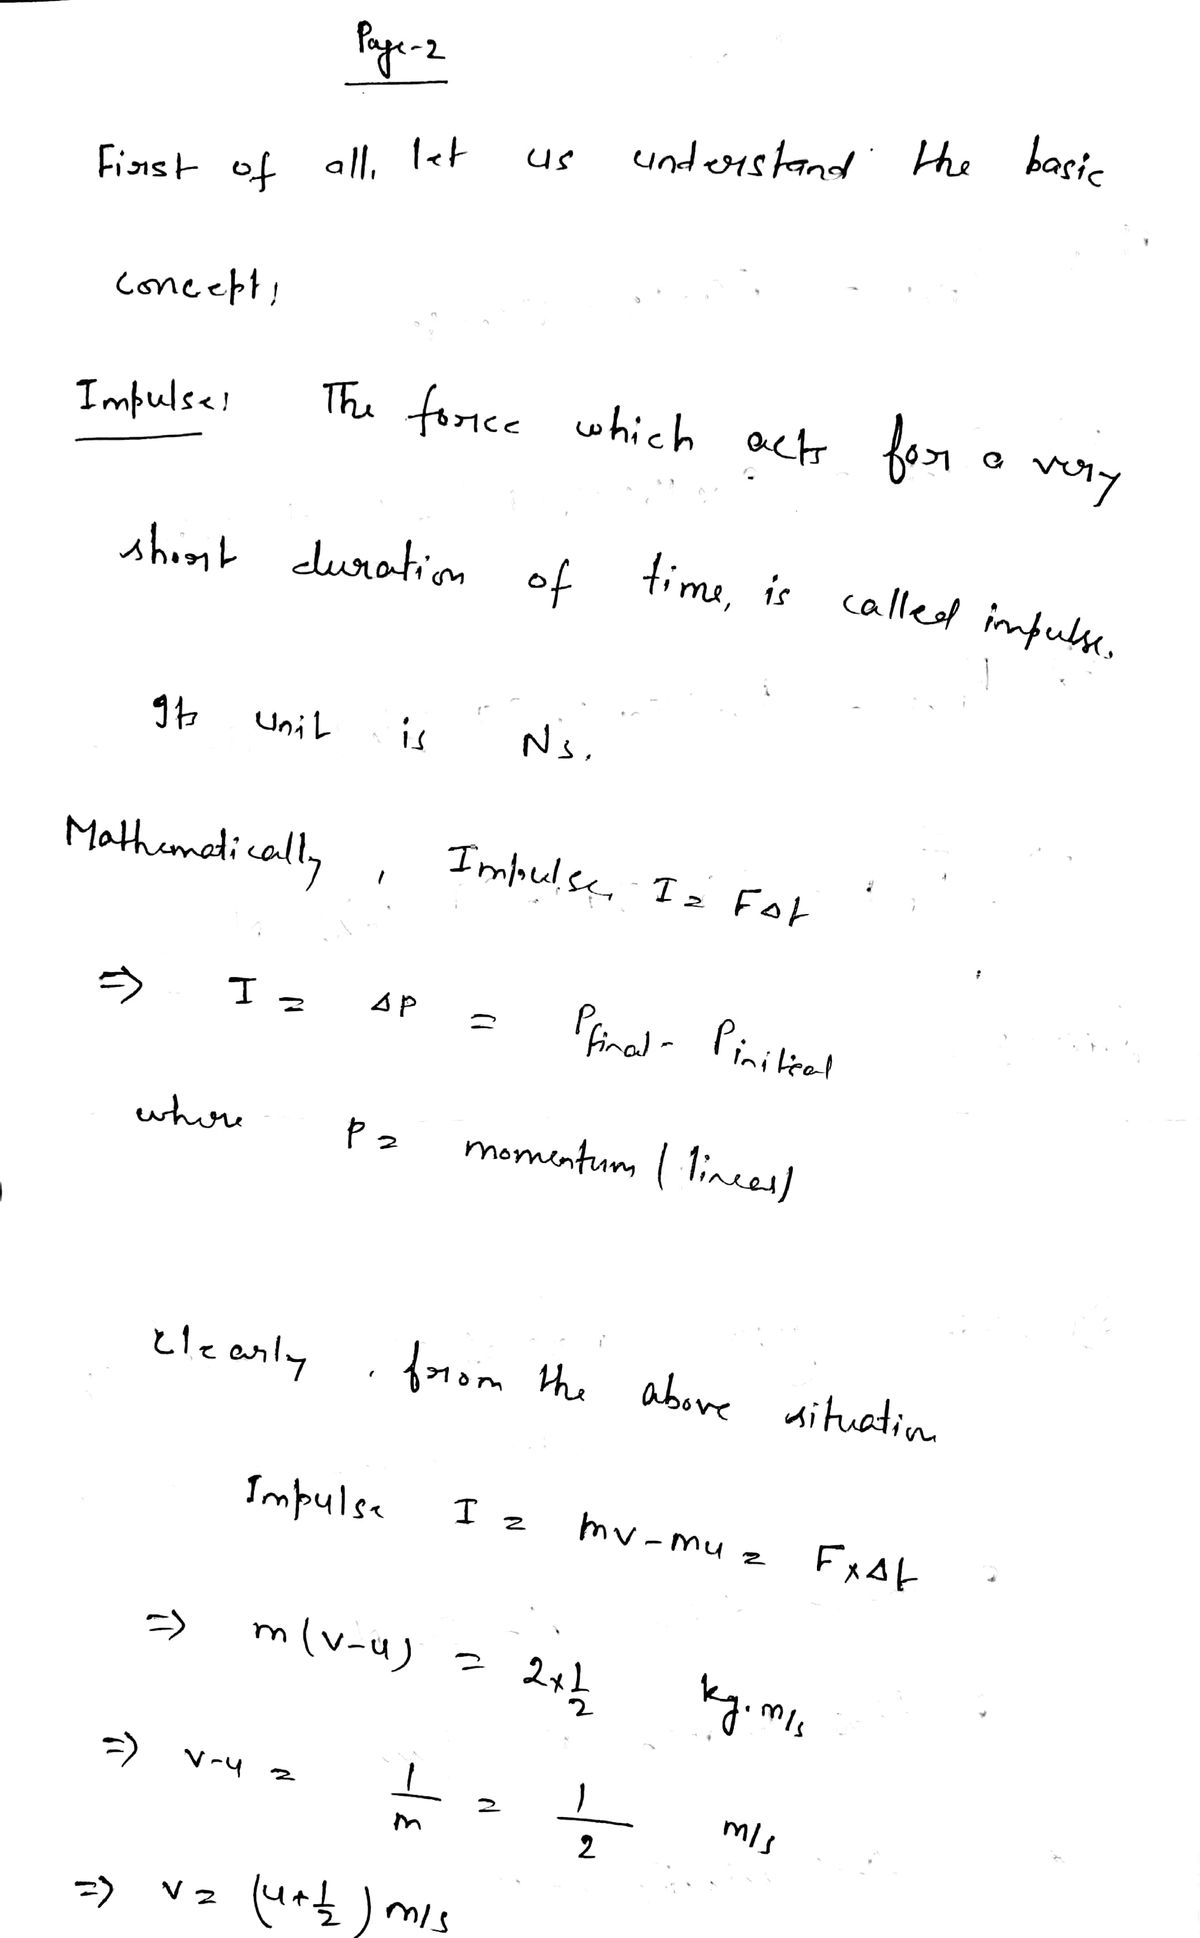 Page-2
First of all, let us understand the basic
concept:
Impulse: The force which acts for a very
short duration of time, is called impulse.
Its unit is Ns.
Mathematically, Impulse, I = FΔt
⇒ I = ΔP = Pfinal - Pinitial
where P = momentum (linear)
clearly, from the above situation
Impulse I = mv-mu = F×Δt
⇒ m(v-u) = 2×1/2 kg.m/s
⇒ v-u = 1/m = 1/2 m/s
⇒ v = (u+1/2) m/s